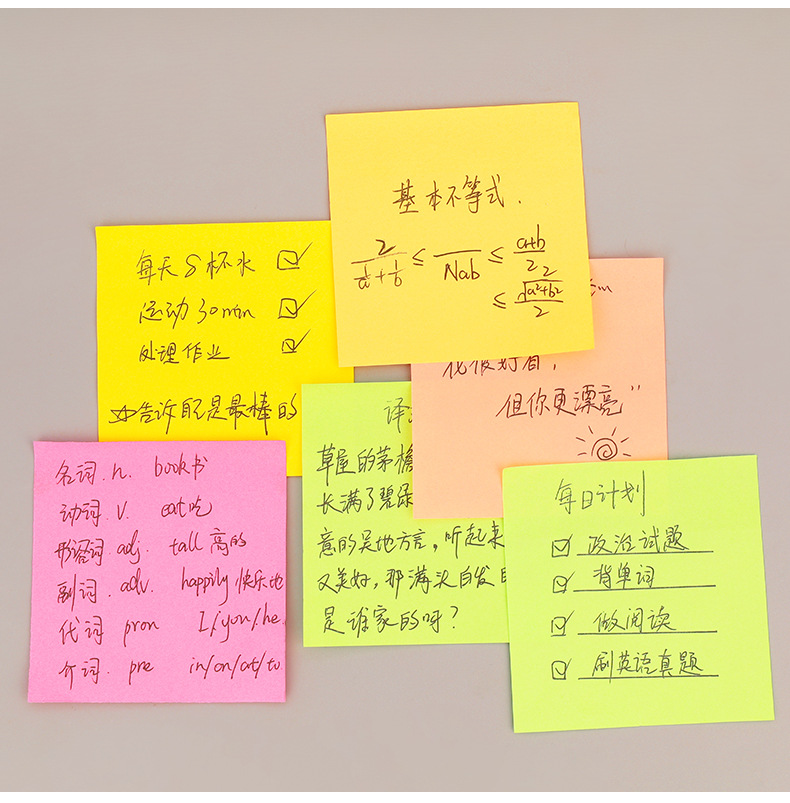 基本不等式.
2/(1/a+1/b) ≤ Nab ≤ a+b/2
≤ √a²+b²/2
每天8杯水 ☑
运动30min ☑
处理作业 ☑
☆告诉自己是最棒的
花很好看,
但你更漂亮"
译
草屋的茅檐
长满了碧绿
意的吴地方言,听起来
又美好,那满头白发
是谁家的呀?
名词.n. book书
动词.v. eat吃
形容词.adj. tall 高的
副词.adv. happily 快乐地
代词 pron I/you/he
介词.pre in/on/at/to
每日计划
☑ 政治试题
☑ 背单词
☑ 做阅读
☑ 刷英语真题